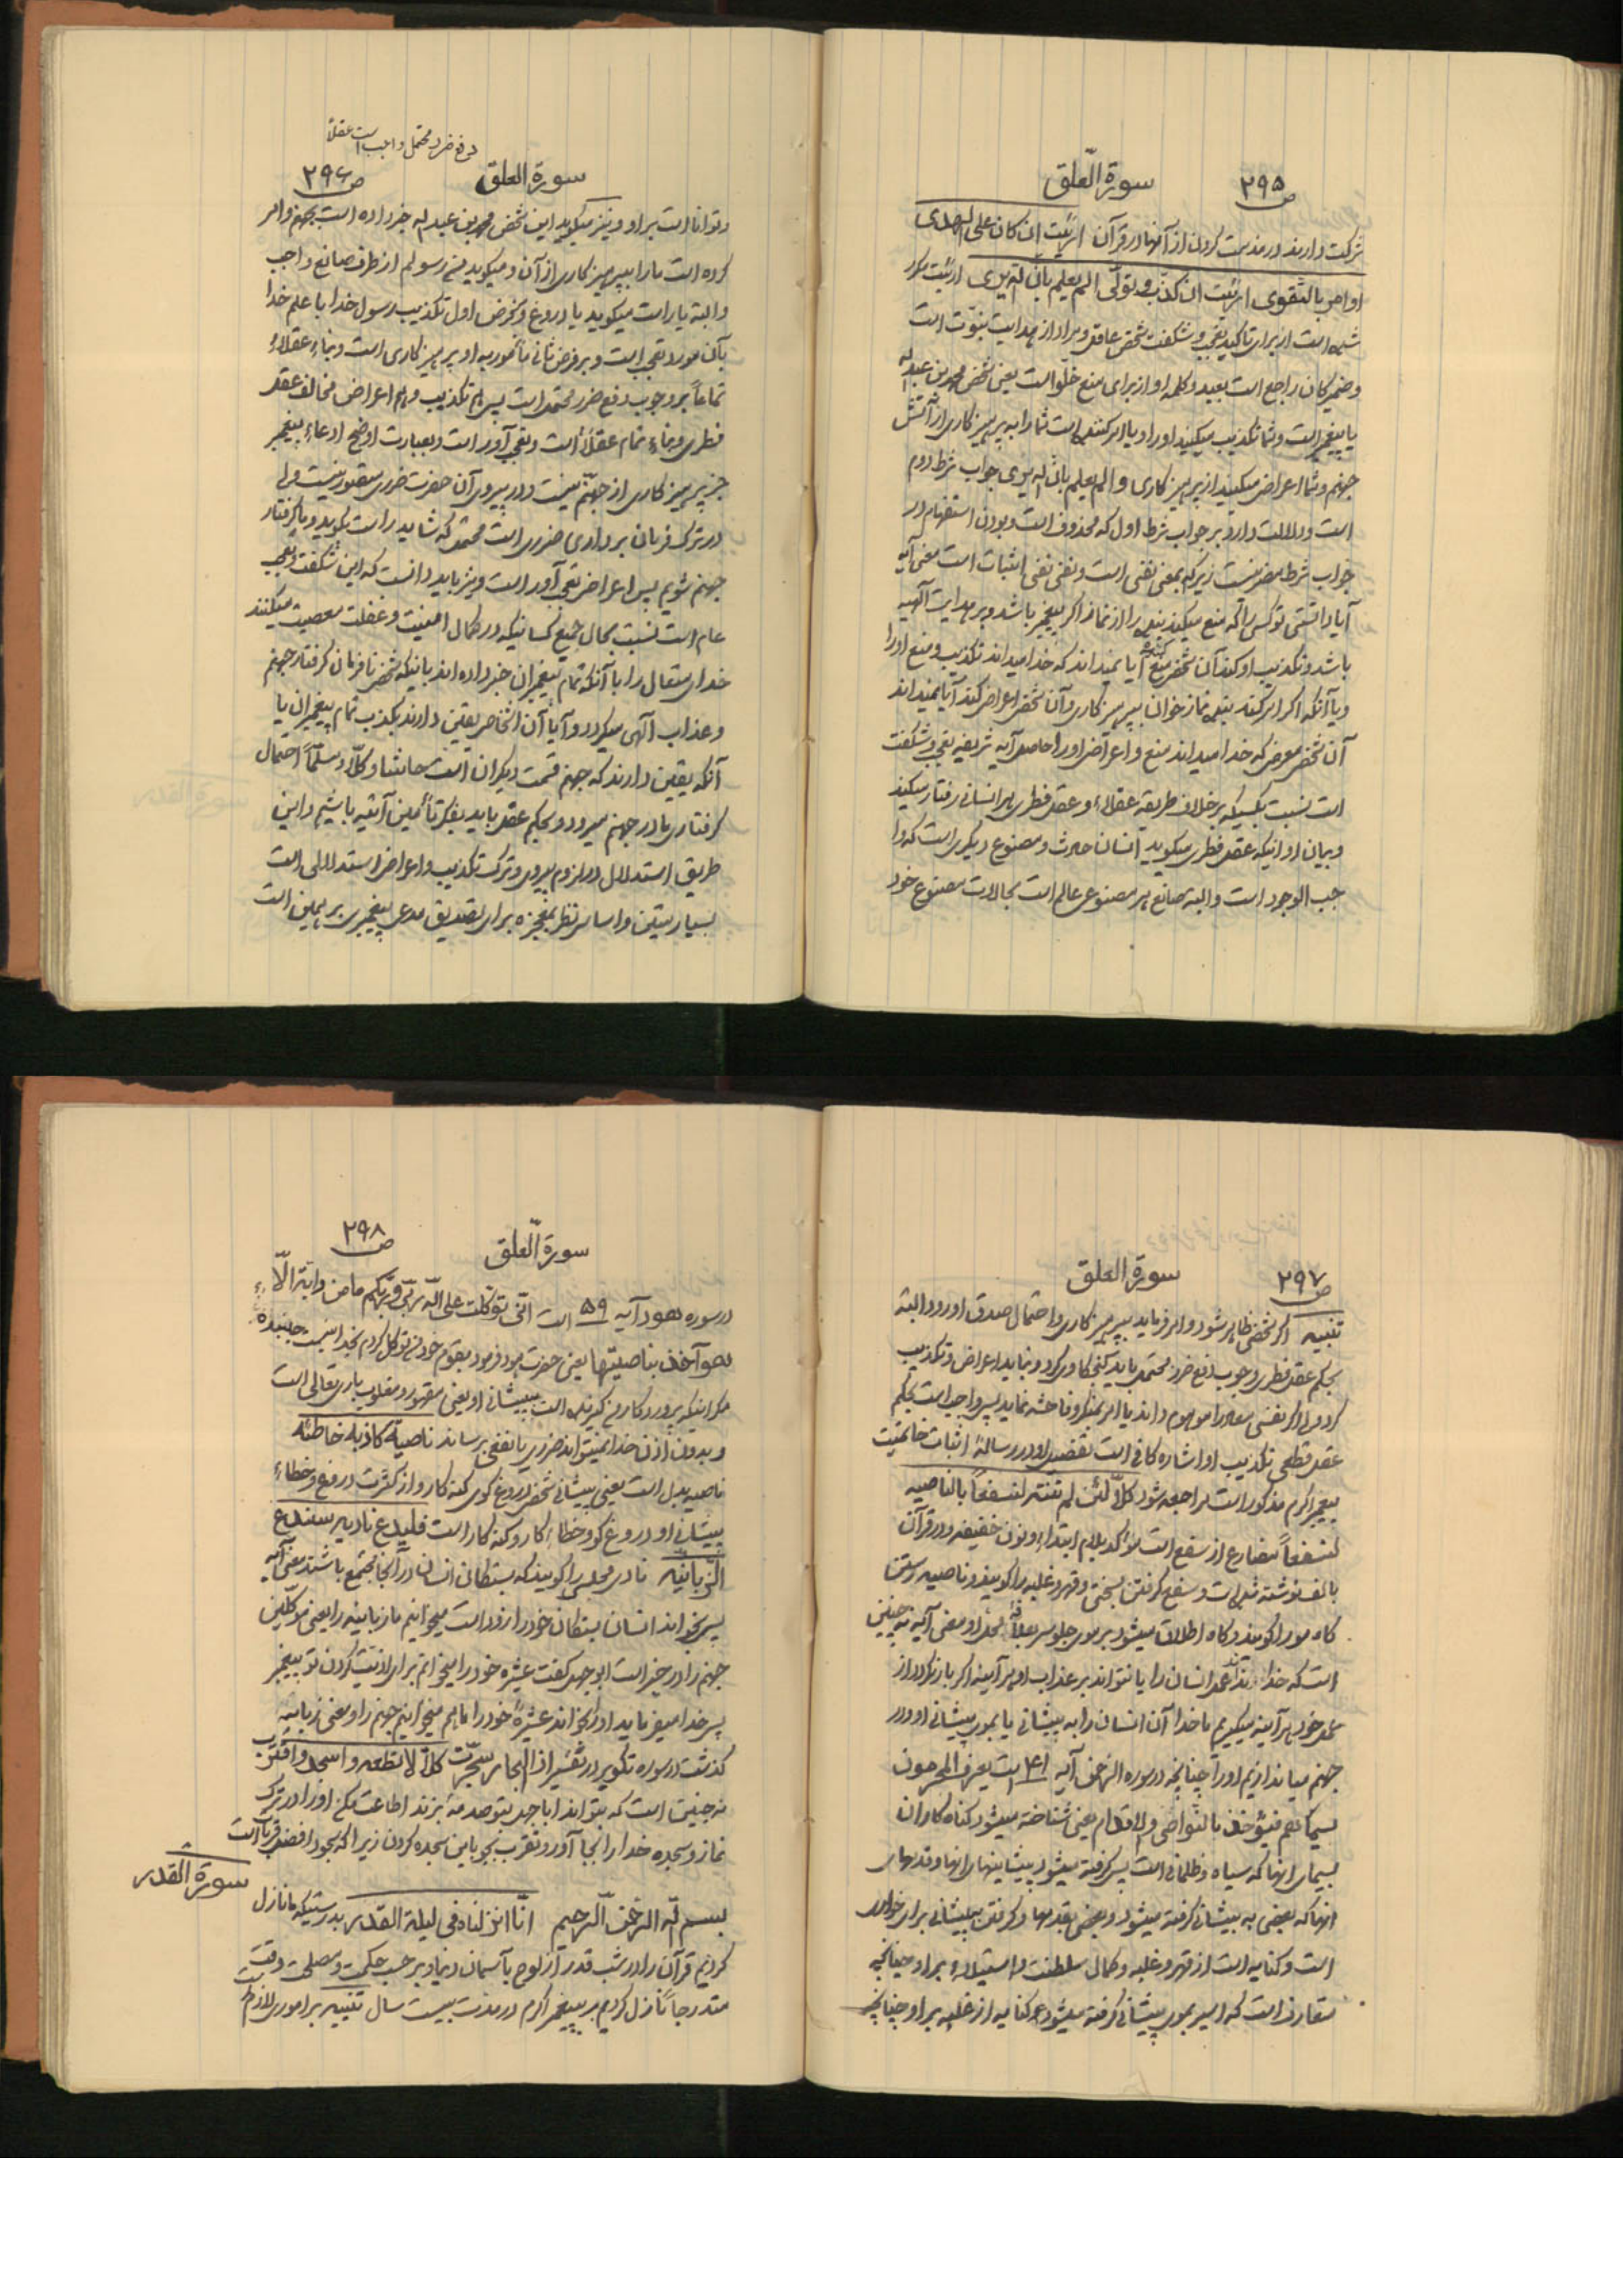 ص ۲۹۵
سورة العلق
شرکت دارند در مذمت کردن از آنها در قرآن ارئیت ان کان علی الهدی
او امر بالتقوی ارئیت ان کذب و تولی الم یعلم بان الله یری ارئیت مکرر
شده است از برای تاکید تعجب و شگفت شخص عاقل و مراد از هدایت نبوت است
و ضمیر کان راجع است بعبد و کلمه او از برای منع خلو است یعنی شخص محمد بن عبدالله
یا پیغمبر است و شما تکذیب میکنید او را و یا امر کننده است شما را به پرهیزکاری از آتش
جهنم و شما اعراض میکنید از پرهیزکاری و الم یعلم بان الله یری جواب شرط دوم
است و دلالت دارد بر جواب شرط اول که محذوف است و بودن استفهام در
جواب شرط مضر نیست زیرا که بمعنی نفی است و نفی نفی اثبات است معنی آیه
آیا دانستی تو کسی را که منع میکند بنده را از نماز اگر پیغمبر باشد و بر هدایت الهیه
باشد و تکذیب او کند آن شخص منع کننده آیا نمیداند که خدا میداند تکذیب و منع او را
و یا آنکه اگر امر کند بنده نمازخوان بپرهیزکاری و آن شخص اعراض کند آیا نمیداند
آن شخص معرض که خدا میداند منع و اعراض او را حاصل آیه شریفه تعجب و شگفت
است نسبت بکسیکه برخلاف طریقه عقلاء و عقل فطری هر انسانی رفتار میکند
و بیان او اینکه عقل فطری میگوید انسان حادث و مصنوع دیگری است که وا
جب الوجود است و البته صانع هر مصنوعی عالم است بحالات مصنوع خود
دفع ضرر محتمل واجب است عقلاً
سورة العلق
ص ۲۹۶
و توانا است بر او و نیز میگوید این شخص محمد بن عبدالله خبر داده است بجهنم و امر
کرده است ما را بپرهیزکاری از آن و میگوید من رسولم از طرف صانع واجب
و البته یا راست میگوید یا دروغ و بفرض اول تکذیب رسول خدا با علم خدا
بآن مورد تعجب است و بر فرض ثانی مأمور به او پرهیزکاری است و بناء عقلاء
تماماً بر وجوب دفع ضرر محتمل است پس هم تکذیب و هم اعراض مخالف عقل
فطری و بناء تمام عقلاء است و تعجب آور است و بعبارت اوضح ادعاء پیغمبر
جز پرهیزکاری از جهنم نیست و در پیروی آن حضرت ضرری متصور نیست ولی
در ترک فرمان برداری ضرری است محتمل که شاید راست بگوید و ما گرفتار
جهنم شویم پس اعراض تعجب آور است و نیز باید دانست که این شگفت و تعجب
عام است نسبت بحال جمیع کسانیکه در کمال امنیت و غفلت معصیت میکنند
خدای متعال را با آنکه تمام پیغمبران خبر داده اند باینکه شخص نافرمان گرفتار جهنم
و عذاب الهی میگردد و آیا آن اشخاص یقین دارند بکذب تمام پیغمبران یا
آنکه یقین دارند که جهنم قسمت دیگران است حاشا و کلا و مسلماً احتمال
گرفتاری ما در جهنم میرود و بحکم عقل باید بفکر تأمین آتیه باشیم و این
طریق استدلال در لزوم پیروی و ترک تکذیب و اعراض استدلالی است
بسیار متین و اساس نظر بمعجزه برای تصدیق مدعی پیغمبری بر همین است
ص ۲۹۷
سورة العلق
تنبیه اگر شخصی ظاهر شود و امر فرماید بپرهیزکاری و احتمال صدق او رود البته
بحکم عقل فطری وجوب دفع ضرر محتمل باید کنجکاوی کرد و نباید اعراض و تکذیب
کرد ولی اگر نفی معاد را موهوم داند یا امر بمنکر و فاحشه نماید پس واجب است بحکم
عقل قطعی تکذیب او اشاره کافی است تفصیل او در رساله اثبات خاتمیت
پیغمبر اکرم مذکور است مراجعه شود کلا لئن لم تنته لنسفعاً بالناصیه
لنسفعاً مضارع از سفع است مؤکد بلام ابتداء و نون خفیفه و در قرآن
بالف نوشته شده است و سفع گرفتن بسختی و قهر و غلبه را گویند و ناصیه رستن
گاه مو را گویند و گاه اطلاق میشود بر موی جلو سر بعلاقه محل او معنی آیه نه چنین
است که خدا نداند عمل انسان را یا نتواند بر عذاب او هر آینه اگر باز نگردد از
عمل خود هر آینه میگیریم ما خدا آن انسان را به پیشانی یا بموی پیشانی او و در
جهنم میاندازیم او را چنانچه در سوره الرحمن آیه ۴۱ است یعرف المجرمون
بسیماهم فیؤخذ بالنواصی و الاقدام یعنی شناخته میشود گناه کاران
بسیمای آنها که سیاه و ظلمانی است پس گرفته میشود پیشانیهای آنها و قدمهای
آنها که بعضی به پیشانی گرفته میشود و بعضی بقدمها و گرفتن به پیشانی برای خواری
است و کنایه است از قهر و غلبه و کمال سلطنت و استیلاء بر او چنانچه
متعارف است که اسیر بموی پیشانی گرفته میشود و کنایه از غلبه بر او چنانچه
سورة العلق
ص ۲۹۸
در سوره هود آیه ۵۹ است انی توکلت علی الله ربی و ربکم ما من دابة الّا
هو آخذ بناصیتها یعنی حضرت هود فرمود بقوم خود من توکل کردم بخدا نیست جنبنده
مگر اینکه پروردگار من گیرنده است به پیشانی او یعنی مقهور و مغلوب باری تعالی است
و بدون اذن خدا نمیتواند ضرری یا نفعی برساند ناصیة کاذبة خاطئه
ناصیه بدل است یعنی پیشانی شخص دروغ گوی گنه کار و از کثرت دروغ و خطاء
پیشانی او دروغ گو و خطاء کار و گنه کار است فلیدع نادیه سندع
الزبانیه نادی مجلسی را گویند که بستگان انسان در آنجا مجتمع باشند معنی آیه
پس بخواند انسان بستگان خود را زود است میخوانیم ما زبانیه را یعنی موکلین
جهنم را در خبر است ابوجهل گفت عشیره خود را میخوانم برای اذیت کردن تو پیغمبر
پس خدا میفرماید او بخواند عشیره خود را ما هم میخوانیم جهنم را و معنی زبانیه
گذشت در سوره تکویر در تفسیر اذا البحار سجرت کلا لا تطعه و اسجد و اقترب
نه چنین است که بتواند ابا جهل بتو صدمه بزند اطاعت مکن او را در ترک
نماز و سجده خدا را بجا آور و تقرب بجو باین سجده کردن زیرا که سجود افضل قربات است
سورة القدر
بسم الله الرحمن الرحیم انّا انزلناه فی لیلة القدر بدرستیکه ما نازل
کردیم قرآن را در شب قدر از لوح بآسمان دنیا و بر حسب حکمت و مصلحت وقت
متدرجاً نازل کردیم بر پیغمبر اکرم در مدت بیست سال تنبیه بر اموری لازم است